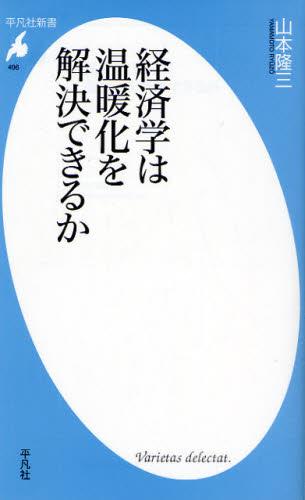 平凡社新書
496
山本隆三
YAMAMOTO RYUZO
経済学は
温暖化を
解決できるか
Varietas delectat.
平凡社